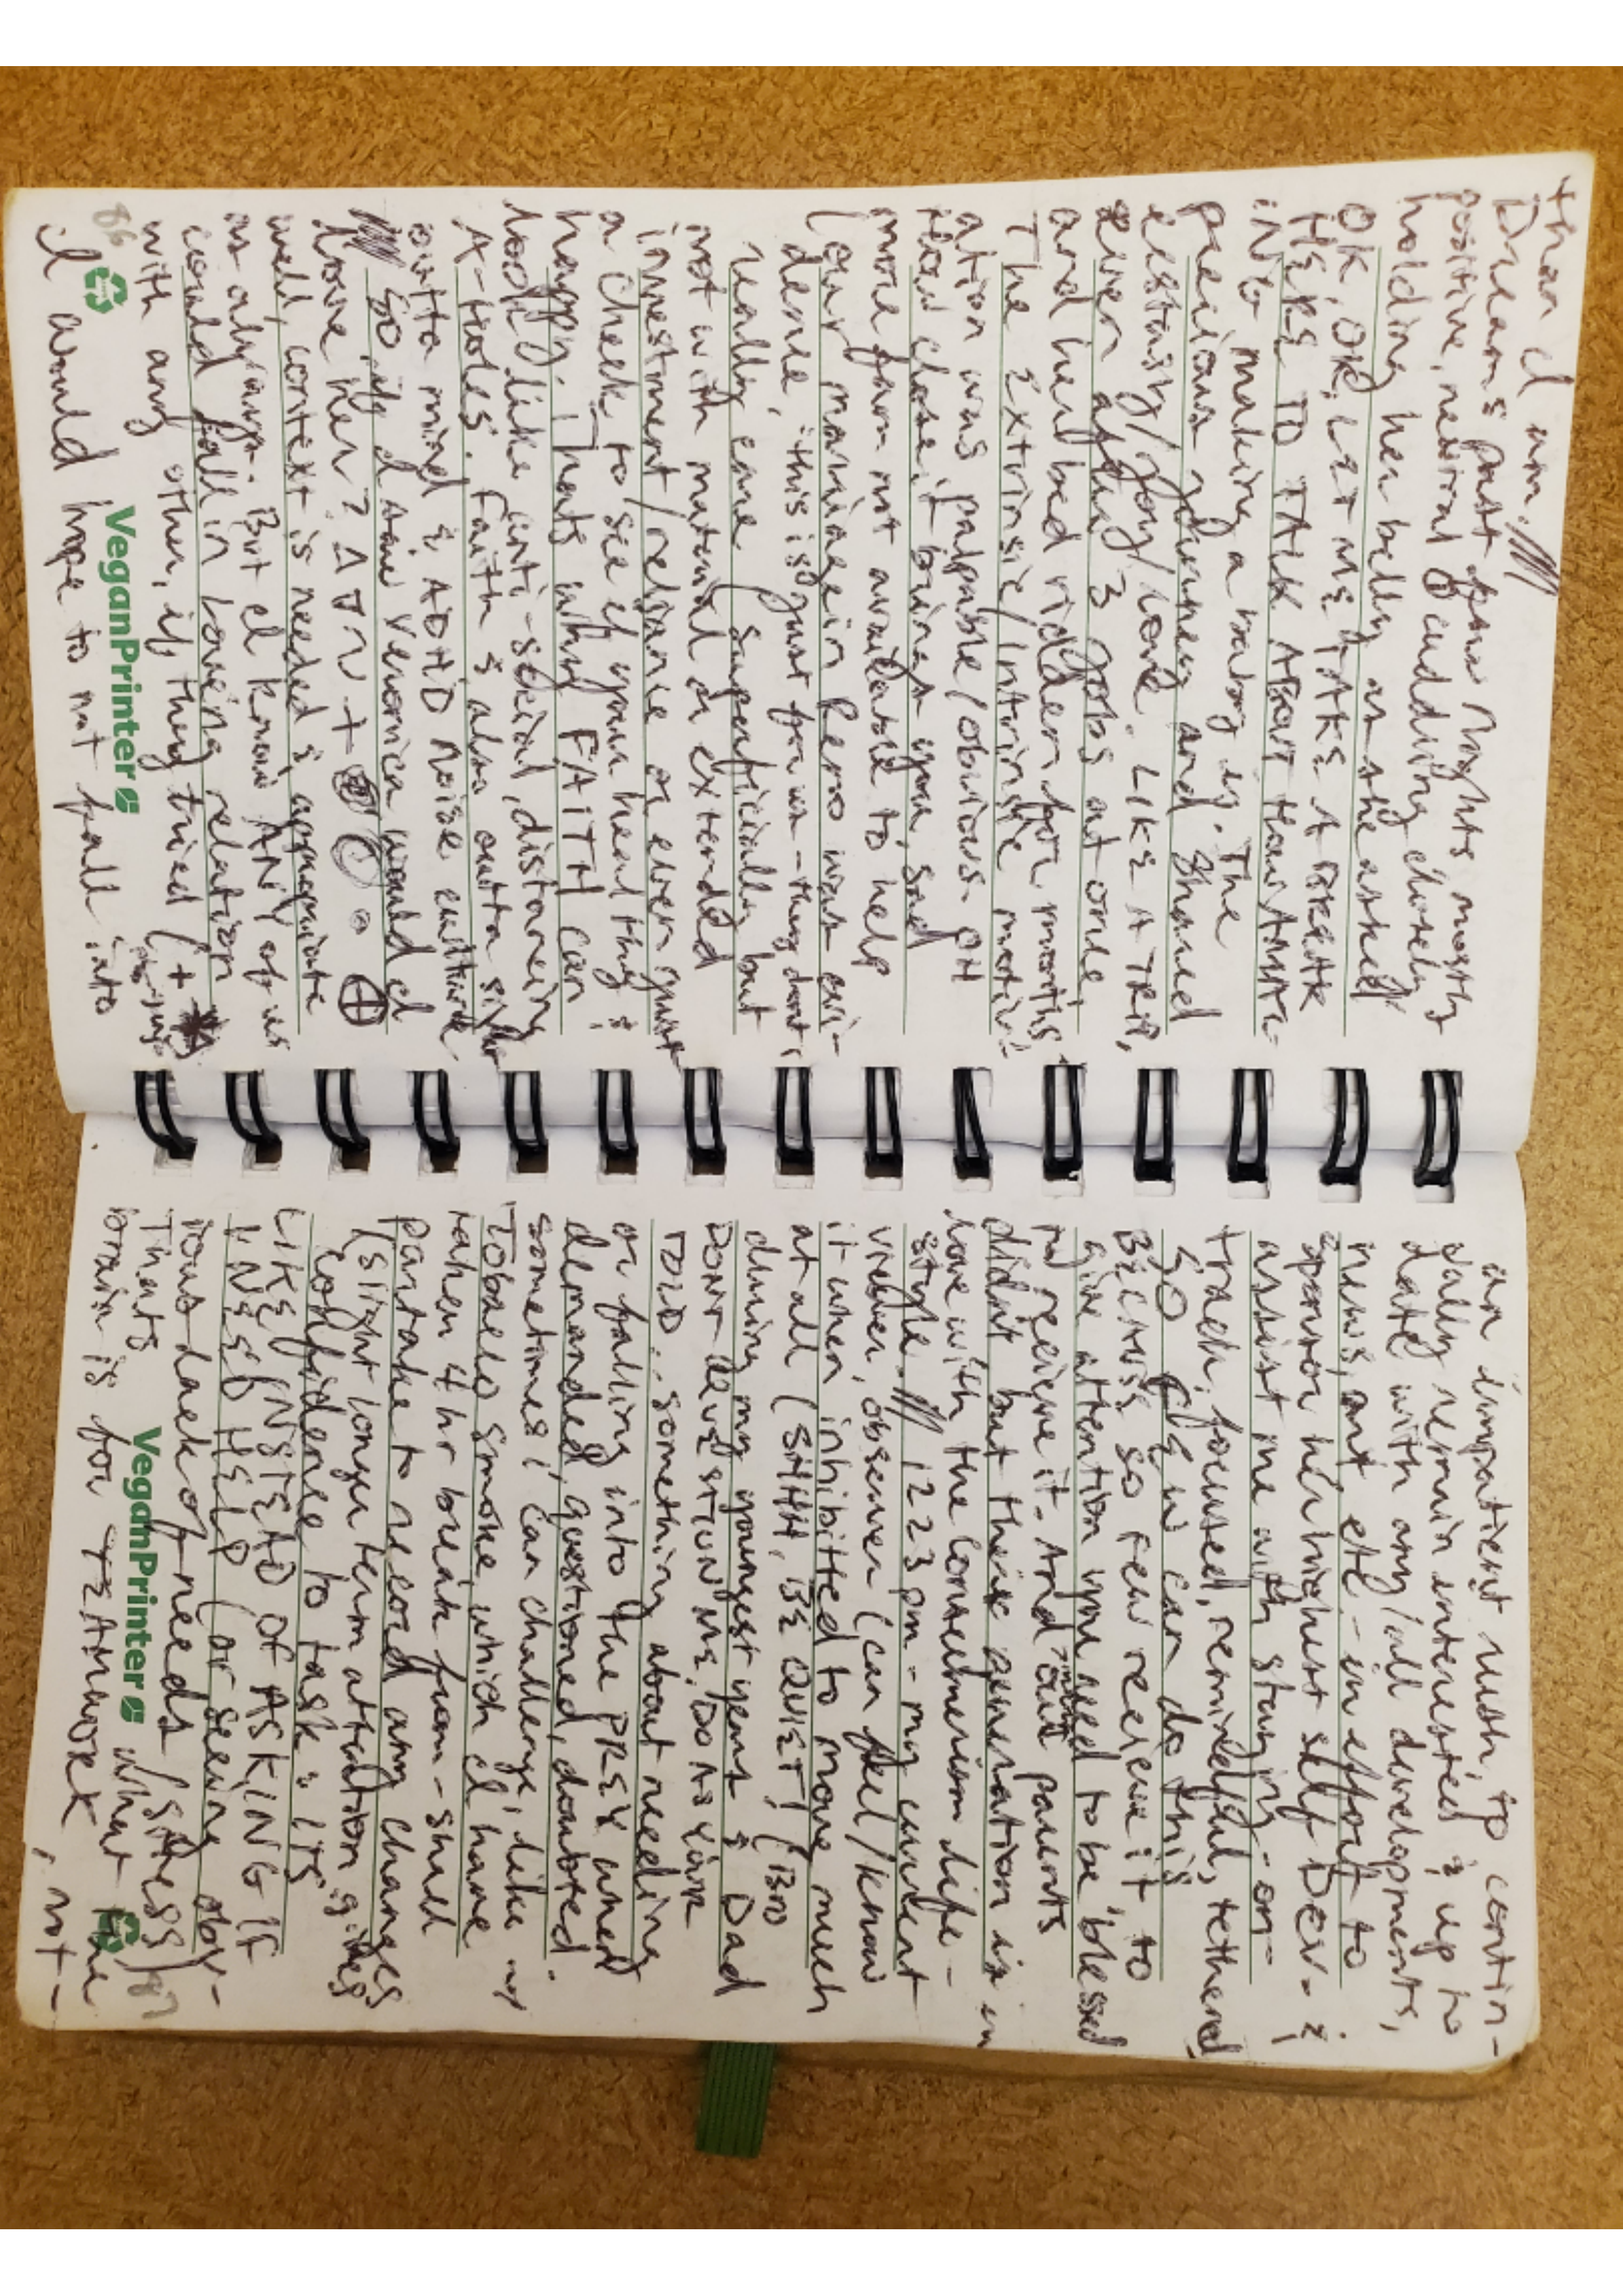 than I am. ///
Dreams past few nights mostly
positive, neutral & cuddling closely
holding her belly as she asked
OK, OK, LET ME TAKE A BREAK
HERE TO TALK ABOUT HOW AMAZ-
ING making a baby is. The
precious journey and shared
ecstasy/joy/love. LIKE A TRIP,
even after 3 jobs at one
and her bed ridden for months
The Extrinsic/Intrinsic motiv-
ation was palpable/obvious. OH
How close it brings you, sad
more fam not available to help
(our marriage in Reno was evi-
dence, "this is just for us - they dont
really care superficially but
not with material or extended
investment/reliance or even just
a check to see if your healthy &
happy. Thats why FAITH can
look like anti-social, distancing
A-holes. Faith is also outta sight
outta mind & ADHD noise culture
/// So if I saw Veronica would I
love her?
well, context is needed & appropriate
as always. But I know ANY of us
could fall in loving relation
with any other, if they tried (+
86
VeganPrinter
I would hope to not fall into
an impatient rush, to contin-
ually remain interested & up to
date with any/all developments,
news, art etc - in effort to
sponsor her highest self Dev. &
assist me with staying - on -
track, focused, remindful, tethered
SO FEW can do this
BECAUSE so few receive it to
give attention you need to be blessed
to receive it. And our parents
didnt but their generation is in
love with the consumerism life -
style. /// 1223pm - my current
viewer, observer (can feel/know
it when inhibitted to move much
at all (SHHH, BE QUIET! (BRO
during my youngest years & Dad
DONT QUESTION ME, DO AS YOUR
TOLD... something about needing
or falling into the PREY when
demanded, questioned, doubted.
sometimes i can challenge, like my
Tobacco smoke, which I have
taken 4 hr break from - shud
partake to record any changes
(slight longer term attention gives
confidence to task & ITS
LIKE INSTEAD OF ASKING IF
I NEED HELP (or seeing obv-
ious lack of needs/stress)
Thats what the
87
VeganPrinter
brain is for TEAMWORK, not -